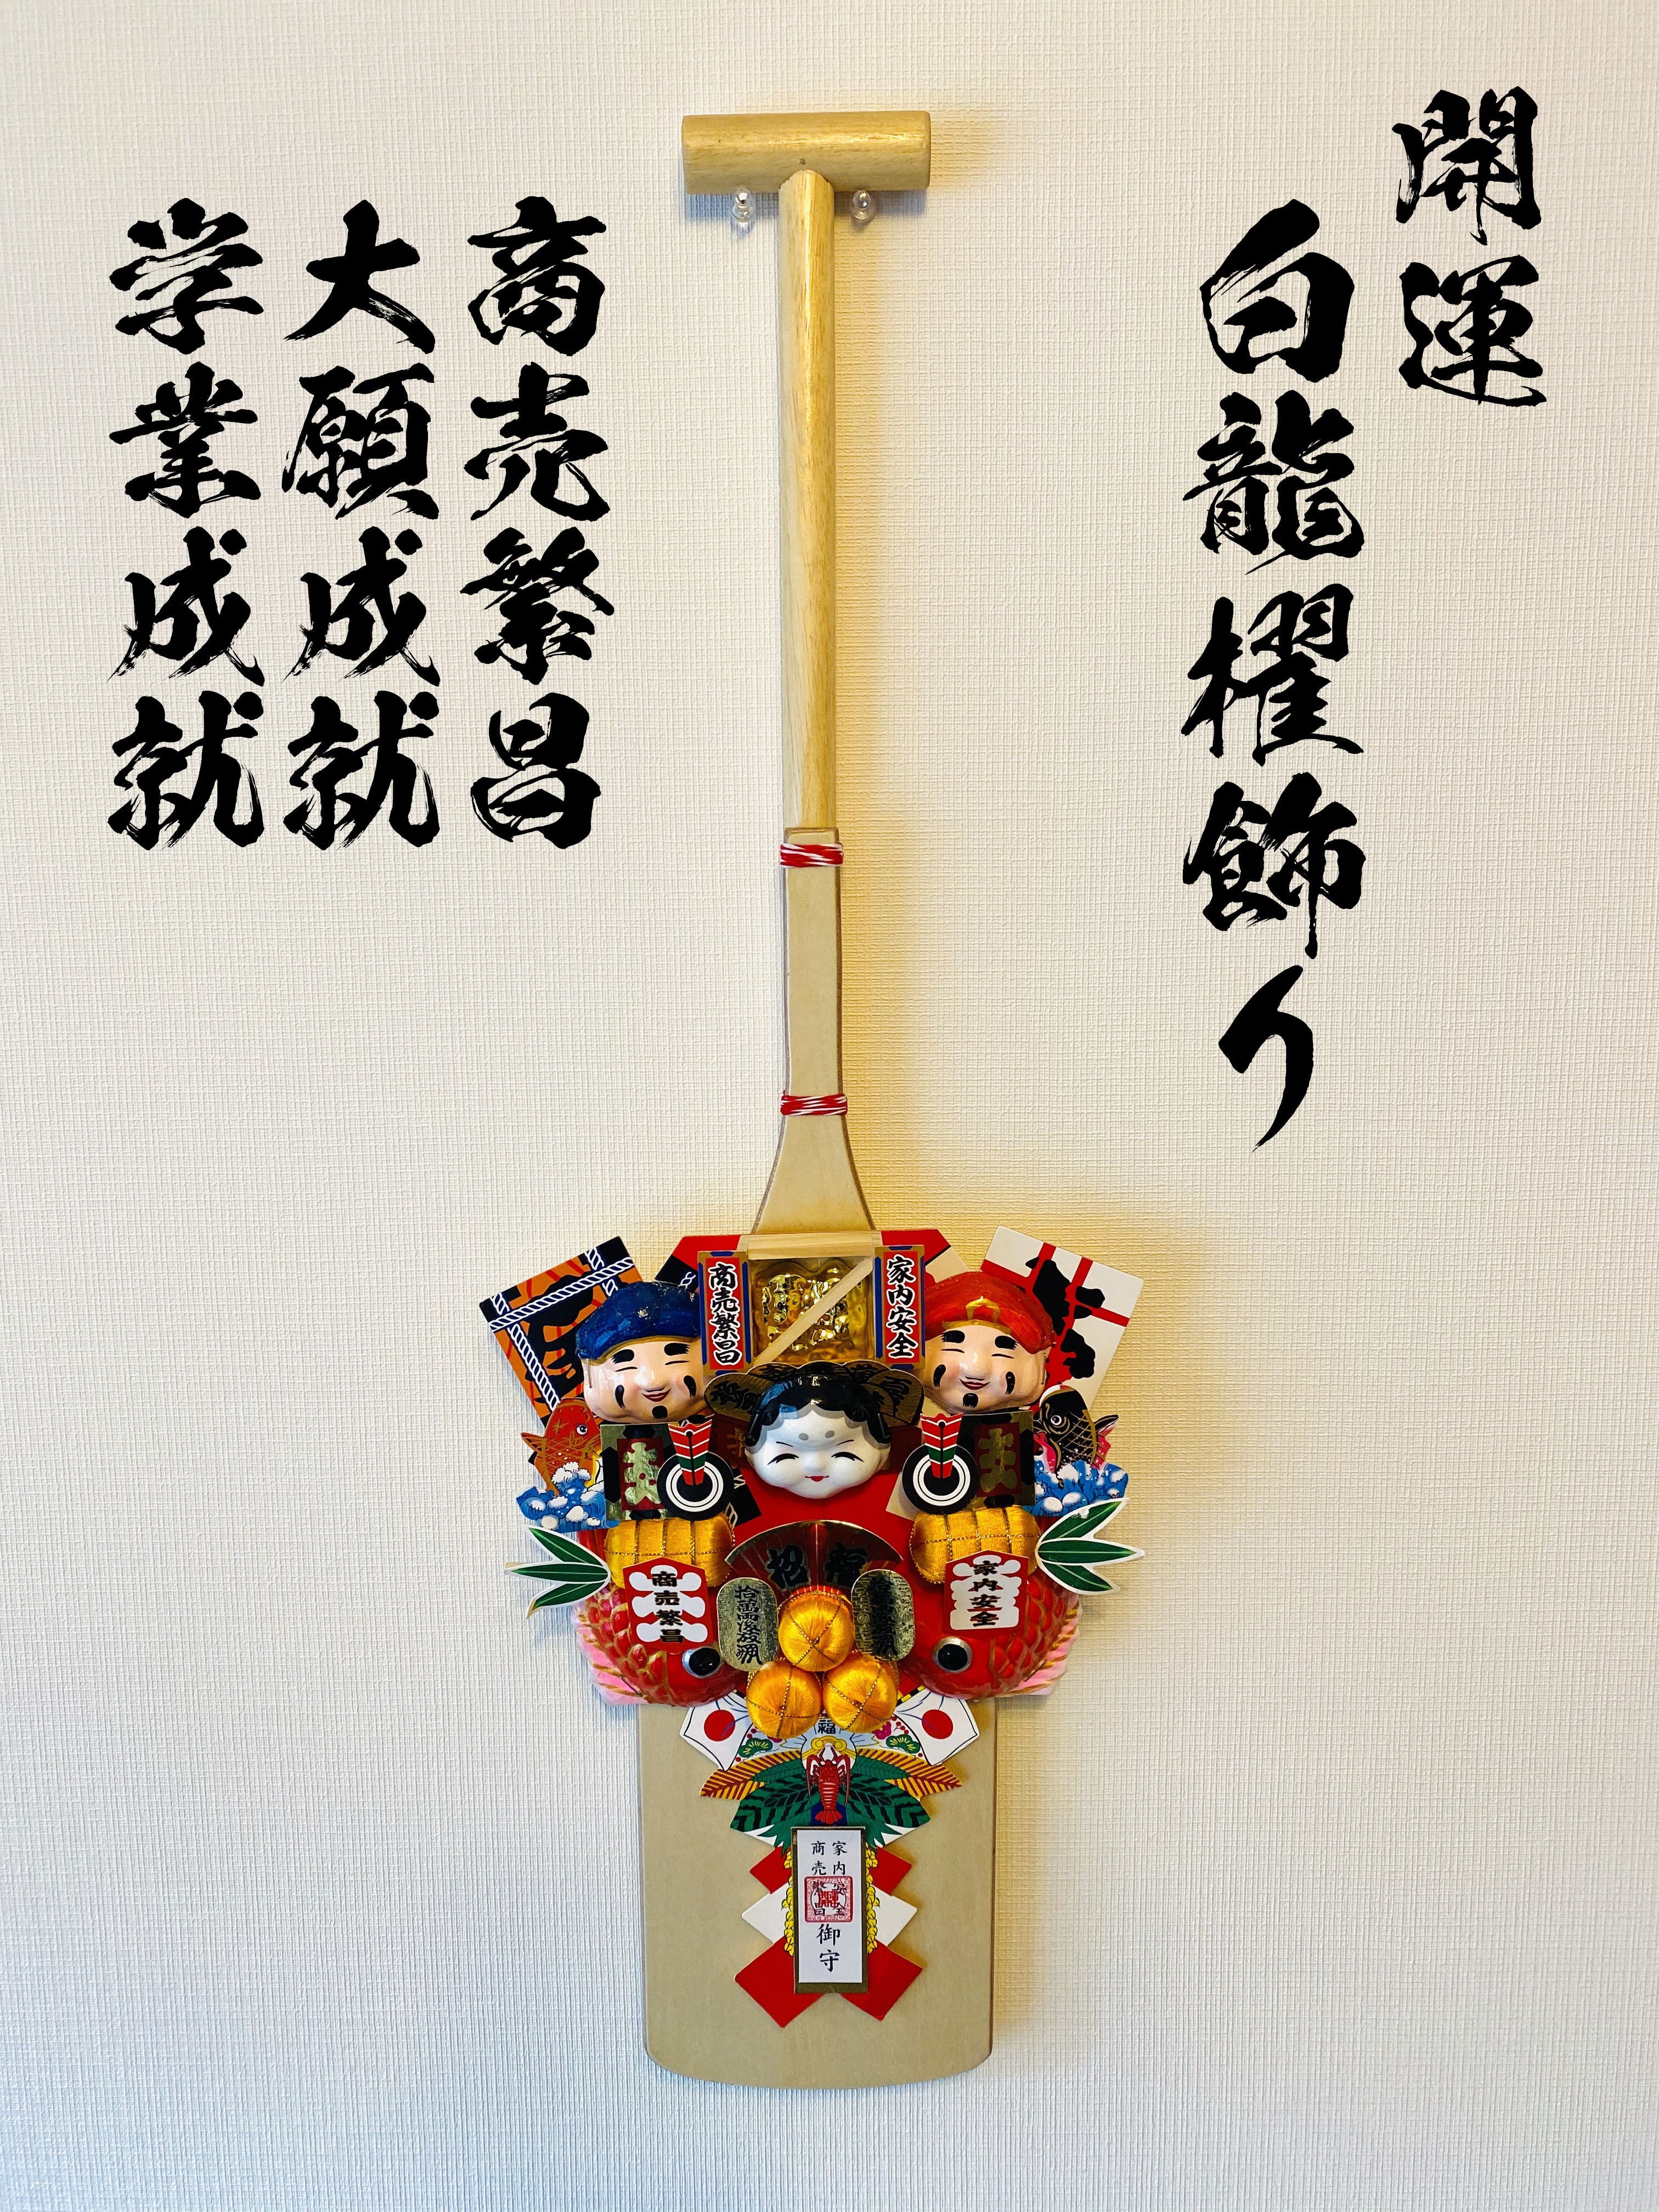 開運
白龍櫂飾り
商売繁昌
大願成就
学業成就
商売繁昌
家内安全
商売繁昌
家内安全
招福
拾萬両
福
家内安全
商売繁昌
御守